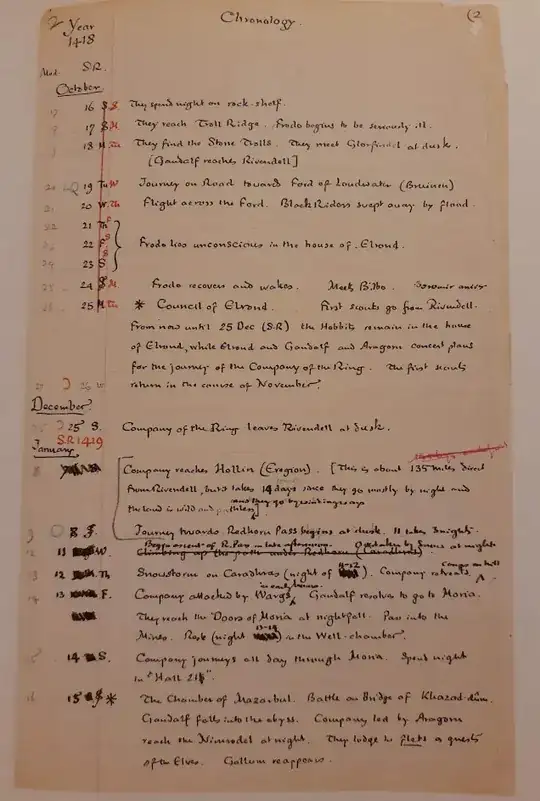 2 Year 1418
Chronology.
(2
Mod. S.R.
October
17 16 S.S. They spend night on rock-shelf.
17 S M. They reach Troll Ridge. Frodo begins to be seriously ill.
18 M Tu They find the Stone Trolls. They meet Glorfindel at dusk.
[Gandalf reaches Rivendell]
20 19 Tu W Journey on Road towards Ford of Loudwater (Bruinen)
21 20 W. Th Flight across the Ford. Black Riders swept away by flood.
22 21 Th F
23 22 F S Frodo lies unconscious in the house of Elrond.
24 23 S S
24 S M Frodo recovers and wakes. Meets Bilbo. Boromir arrives
25 M. Tu * Council of Elrond. First scouts go from Rivendell.
From now until 25 Dec (S.R) the Hobbits remain in the house
of Elrond, while Elrond and Gandalf and Aragorn concert plans
for the journey of the Company of the Ring. The first scouts
return in the course of November.
December
25 S. Company of the Ring leaves Rivendell at dusk.
S.R 1419
January
8 Company reaches Hollin (Eregion). [This is about 135 miles direct
from Rivendell, but it takes 14 days since they go mostly by night and
the land is wild and pathless
and they go by
9 8 F. Journey towards Redhorn Pass begins at dusk. It takes 3 nights.
Begin ascent of R. Pass in late afternoon. Overtaken by snow at night
11 W. Climbing up the path under Redhorn (Caradhras)
12 Th Snowstorm on Caradhras (night of 11-12). Company retreats.
13 F. Company attacked by Wargs in early hours. Gandalf resolves to go to Moria.
They reach the Doors of Moria at nightfall. Pass into the
Mines. Rest (night 13-14) in the Well-chamber.
14 S. Company journeys all day through Moria. Spend night
in "Hall 21st".
15 * The Chamber of Mazarbul. Battle on Bridge of Khazad-dûm.
Gandalf falls into the abyss. Company led by Aragorn
reach the Nimrodel at night. They lodge in flets as guests
of the Elves. Gollum reappears.